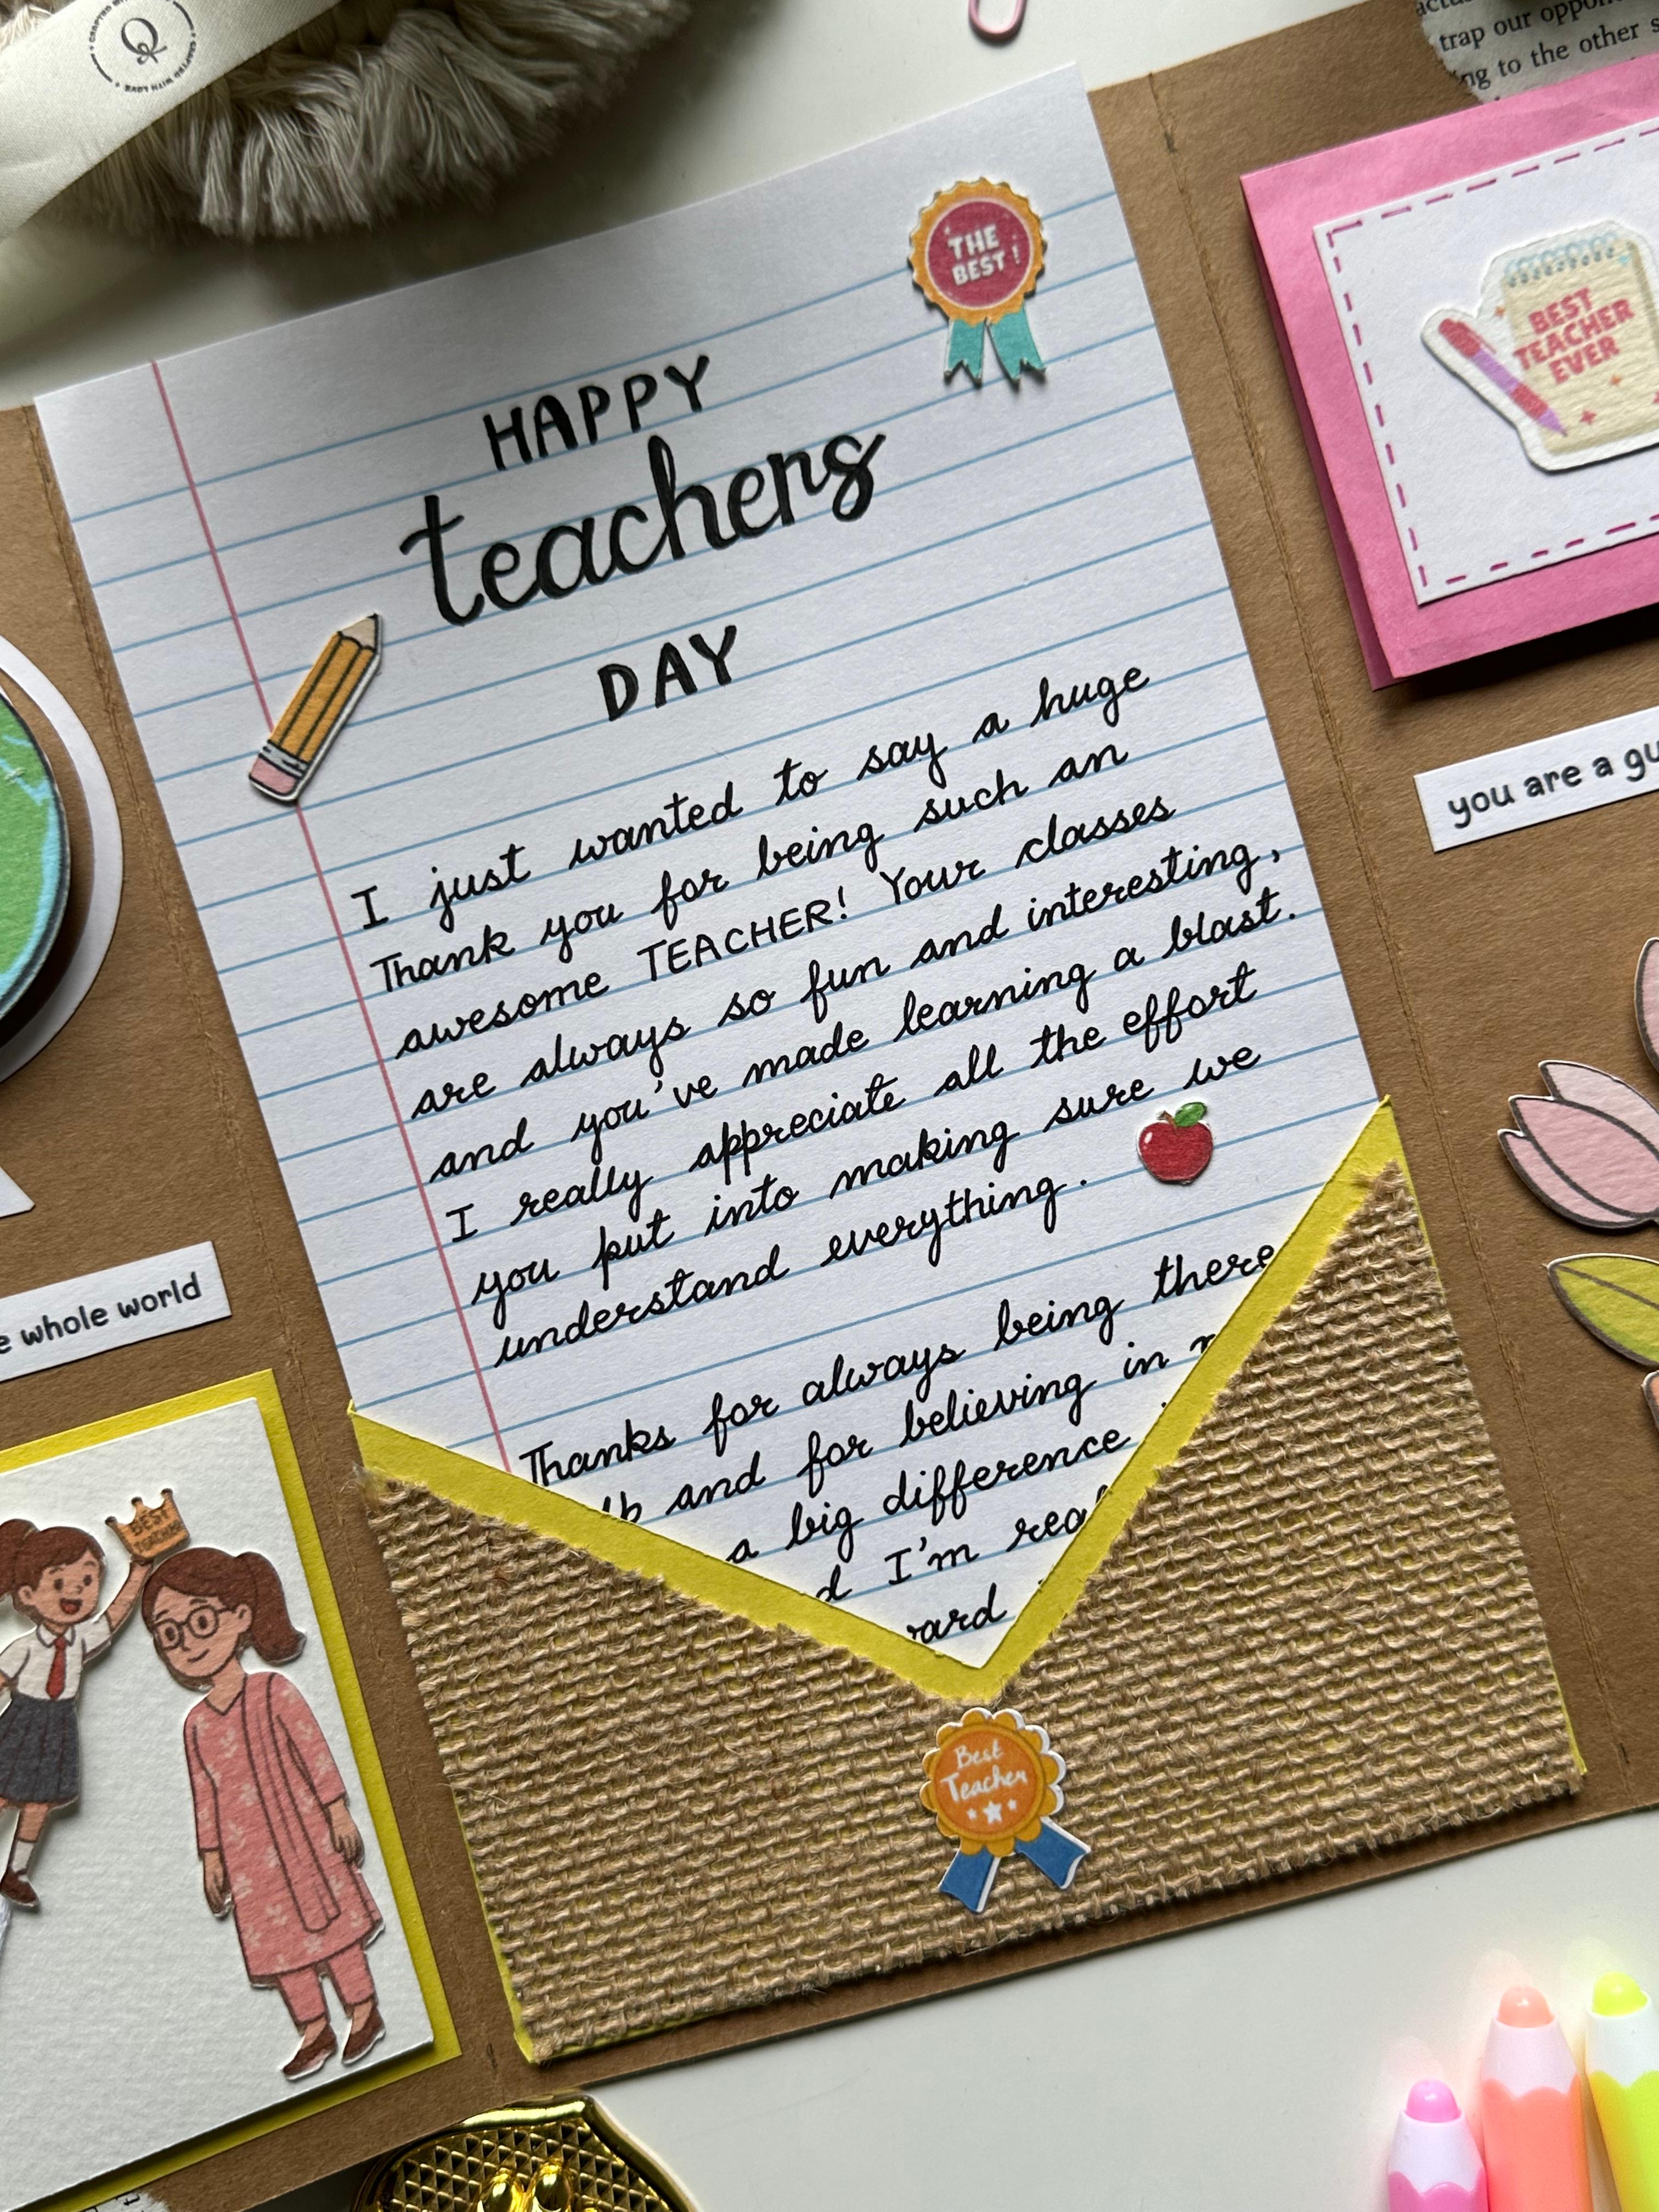 CRAFTED WITH LOVE
trap our
to the other
THE
BEST!
HAPPY
teachers
DAY
BEST
TEACHER
EVER
I just wanted to say a huge
Thank you for being such an
awesome TEACHER! Your classes
are always so fun and interesting,
and you've made learning a blast.
I really appreciate all the effort
you put into making sure we
understand everything.
Thanks for always being there
and for believing in
a big difference
I'm
you are a
whole world
BEST
Best
Teacher